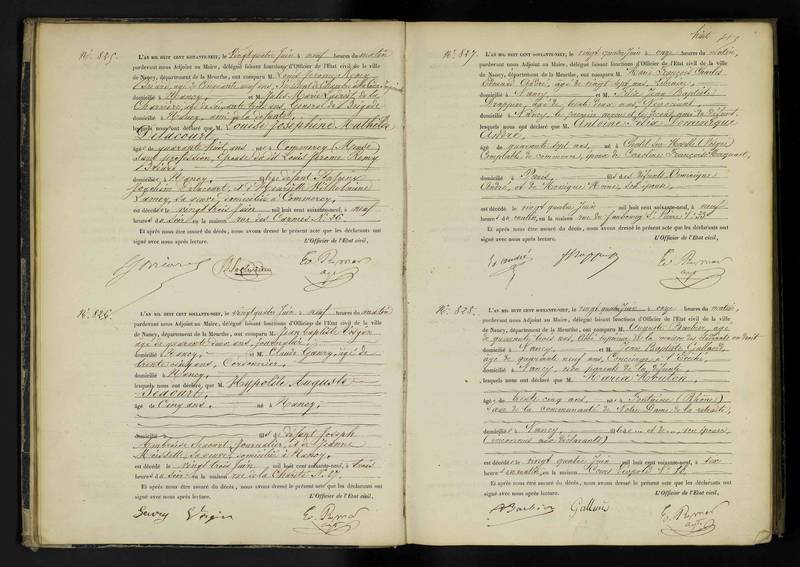 N°. 825.
L'AN MIL HUIT CENT SOIXANTE-NEUF, le vingt quatre Juin à neuf heures du matin
pardevant nous Adjoint au Maire, délégué faisant fonctions d'Officier de l'Etat civil de la ville
de Nancy, département de la Meurthe, ont comparu M. Louis Jérome Remy
âgé de Cinquante neuf ans, Président de Chambre à la Cour Impériale
domicilié à Nancy, et M. Jules Marie
âgé de soixante huit ans, Général de Brigade
domicilié à Nancy, ami de la défunte,
lesquels nous ont déclaré que M. Louise Joséphine Mathilde
Delacourt,
âgée de quarante huit ans, née à Commercy (Meuse)
sans profession, Epouse du dit Louis Jérome Remy
domiciliée à Nancy, fille de défunt
Joachim Delacourt, et d'Henriette Wilhelmine
sa veuve, domiciliée à Commercy,
est décédée le vingt trois Juin mil huit cent soixante-neuf, à neuf
heures du soir en la maison rue des Carmes N° 36
Et après nous être assuré du décès, nous avons dressé le présent acte que les déclarants ont
signé avec nous après lecture. L'Officier de l'Etat civil,
N°. 826.
L'AN MIL HUIT CENT SOIXANTE-NEUF, le vingt quatre Juin à neuf heures du matin
pardevant nous Adjoint au Maire, délégué faisant fonctions d'Officier de l'Etat civil de la ville
de Nancy, département de la Meurthe, ont comparu M. Jean Baptiste Voirin
âgé de quarante deux ans, journalier,
domicilié à Nancy, et M. Claude Gaury, âgé de
trente cinq ans, Cordonnier,
domicilié à Nancy,
lesquels nous ont déclaré que M. Hyppolite Auguste
âgé de Cinq ans, né à Nancy,
domicilié fils de défunt Joseph
Ambroise journalier, et de Jeanne
sa veuve, domiciliée à Nancy,
est décédé le vingt trois Juin mil huit cent soixante-neuf, à trois
heures du soir en la maison rue de la Charité N°
Et après nous être assuré du décès, nous avons dressé le présent acte que les déclarants ont
signé avec nous après lecture. L'Officier de l'Etat civil,
Gaury Voirin
N°. 827.
L'AN MIL HUIT CENT SOIXANTE-NEUF, le vingt quatre Juin à onze heures du matin,
pardevant nous Adjoint au Maire, délégué faisant fonctions d'Officier de l'Etat civil de la ville
de Nancy, département de la Meurthe, ont comparu M. Marie François Charles
André, âgé de vingt sept ans, Libraire,
domicilié à Nancy, et M. Jean Baptiste
Drappier, âgé de trente deux ans, Négociant
domicilié à Nancy, le premier neveu et le second ami du défunt,
lesquels nous ont déclaré que M. Antoine Félix Dominique
André,
âgé de quarante sept ans, né à Châtel sur Moselle (Vosges)
Comptable de commerce, époux de Caroline Françoise
domicilié à Paris, fils des défunts Dominique
André, et de Monique son épouse,
est décédé le vingt quatre Juin mil huit cent soixante-neuf, à neuf
heures du matin, en la maison rue du faubourg St Pierre N° 33
Et après nous être assuré du décès, nous avons dressé le présent acte que les déclarants ont
signé avec nous après lecture. L'Officier de l'Etat civil,
André Drappier
N°. 828.
L'AN MIL HUIT CENT SOIXANTE-NEUF, le vingt quatre Juin à onze heures du matin,
pardevant nous Adjoint au Maire, délégué faisant fonctions d'Officier de l'Etat civil de la ville
de Nancy, département de la Meurthe, ont comparu M. Auguste Barbier, âgé
de quarante trois ans, Abbé supérieur de la maison des étudiants en droit
domicilié à Nancy, et M. Jean Baptiste
âgé de quarante neuf ans, Concierge à l'Evêché,
domicilié à Nancy, non parents de la défunte,
lesquels nous ont déclaré que M. Maria
âgée de trente cinq ans, née à Fontaine (Rhône)
Sœur de la communauté de Notre Dame de la retraite,
domiciliée à Nancy, fille ... et de ... son épouse
(inconnus aux déclarants)
est décédée le vingt quatre Juin mil huit cent soixante-neuf, à
heures du matin, en la maison Cours Léopold N°
Et après nous être assuré du décès, nous avons dressé le présent acte que les déclarants ont
signé avec nous après lecture. L'Officier de l'Etat civil,
ABarbier